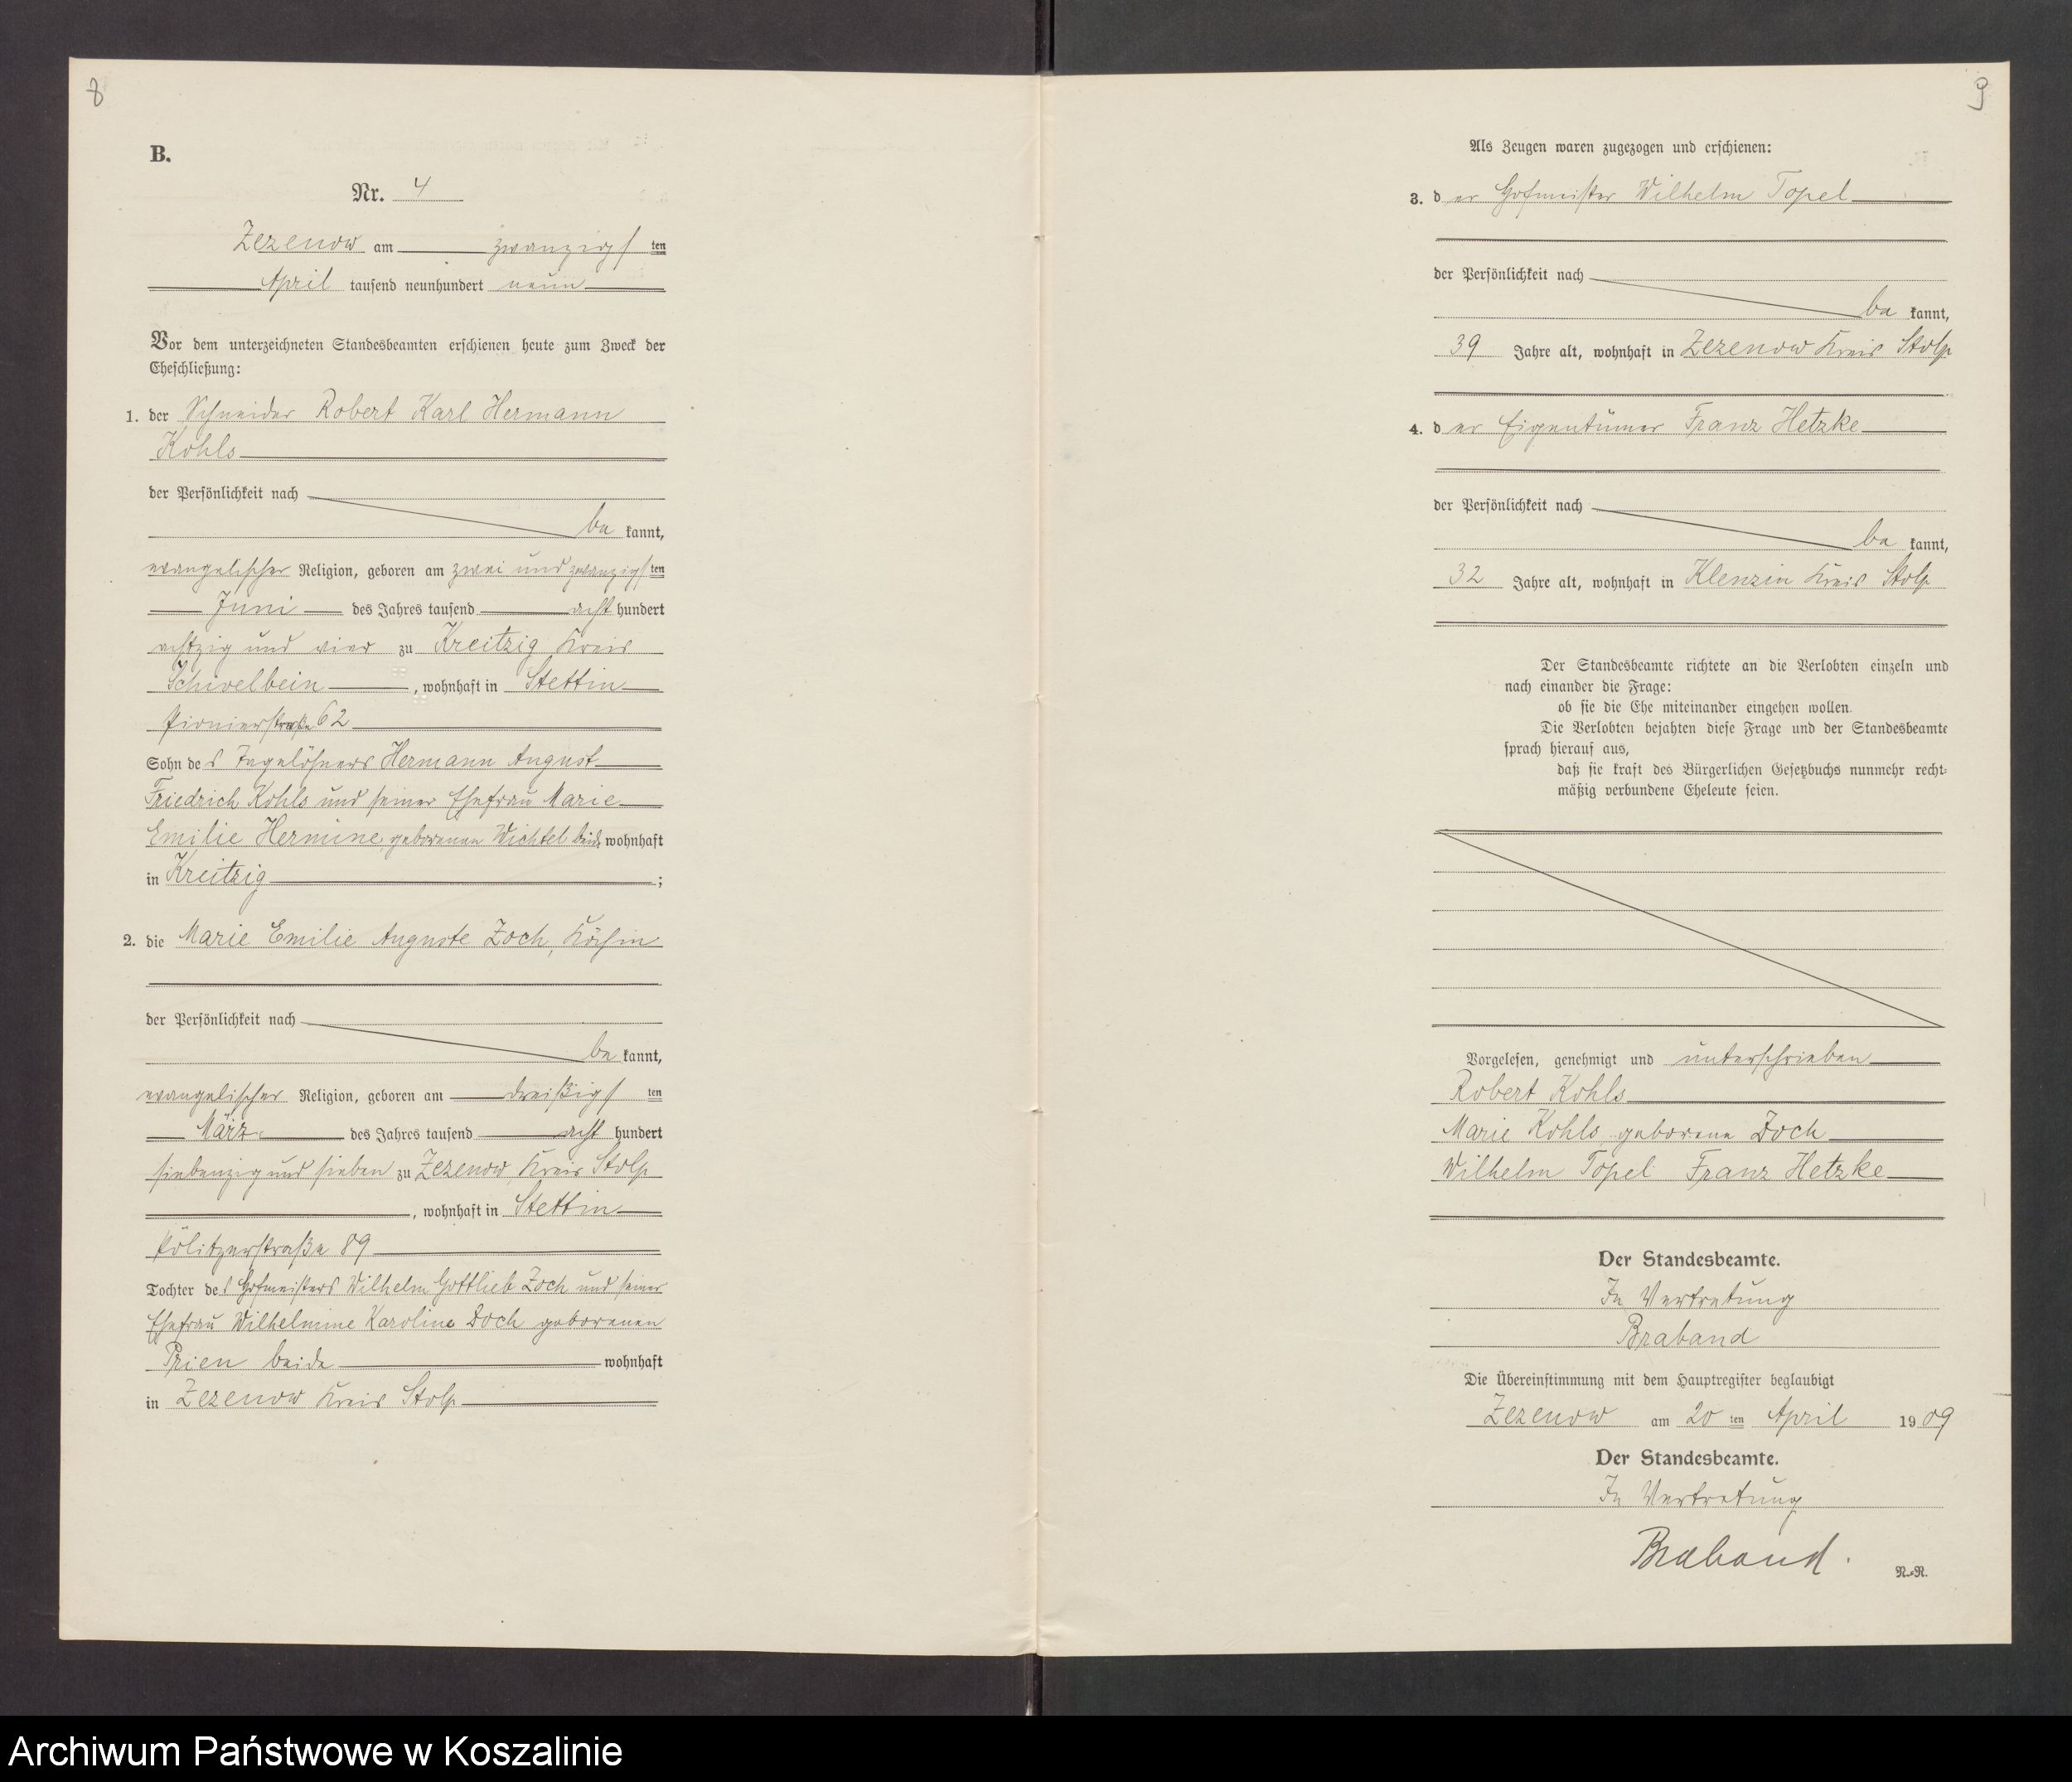 8
B.
Nr. 4
Zezenow am zwanzigsten
April tausend neunhundert neun
Vor dem unterzeichneten Standesbeamten erschienen heute zum Zweck der
Eheschließung:
1. der Schneider Robert Karl Hermann
Kohls
der Persönlichkeit nach
be kannt,
evangelischer Religion, geboren am zwei und zwanzigsten
Juni des Jahres tausend acht hundert
achtzig und vier zu Kreitzig Kreis
Schivelbein, wohnhaft in Stettin
Pionierstraße 62
Sohn des Tagelöhners Hermann August
Friedrich Kohls und seiner Ehefrau Marie
Emilie Hermine, geborenen Wichtel beide wohnhaft
in Kreitzig;
2. die Marie Emilie Auguste Zoch, Köchin
der Persönlichkeit nach
be kannt,
evangelischer Religion, geboren am dreißigsten
März des Jahres tausend acht hundert
siebenzig und sieben zu Zezenow, Kreis Stolp
, wohnhaft in Stettin
Pölitzerstraße 89
Tochter des Hofmeisters Wilhelm Gottlieb Zoch und seiner
Ehefrau Wilhelmine Karoline Zoch geborenen
Prien beide wohnhaft
in Zezenow Kreis Stolp
9
Als Zeugen waren zugezogen und erschienen:
3. der Hofmeister Wilhelm Topel
der Persönlichkeit nach
be kannt,
39 Jahre alt, wohnhaft in Zezenow Kreis Stolp
4. der Eigentümer Franz Hetzke
der Persönlichkeit nach
be kannt,
32 Jahre alt, wohnhaft in Klenzin Kreis Stolp
Der Standesbeamte richtete an die Verlobten einzeln und
nach einander die Frage:
ob sie die Ehe miteinander eingehen wollen.
Die Verlobten bejahten diese Frage und der Standesbeamte
sprach hierauf aus,
daß sie kraft des Bürgerlichen Gesetzbuchs nunmehr recht-
mäßig verbundene Eheleute seien.
Vorgelesen, genehmigt und unterschrieben
Robert Kohls
Marie Kohls, geborene Zoch
Wilhelm Topel Franz Hetzke
Der Standesbeamte.
In Vertretung
Braband
Die Übereinstimmung mit dem Hauptregister beglaubigt
Zezenow am 20 ten April 1909
Der Standesbeamte.
In Vertretung
Braband.
R.-R.
Archiwum Państwowe w Koszalinie